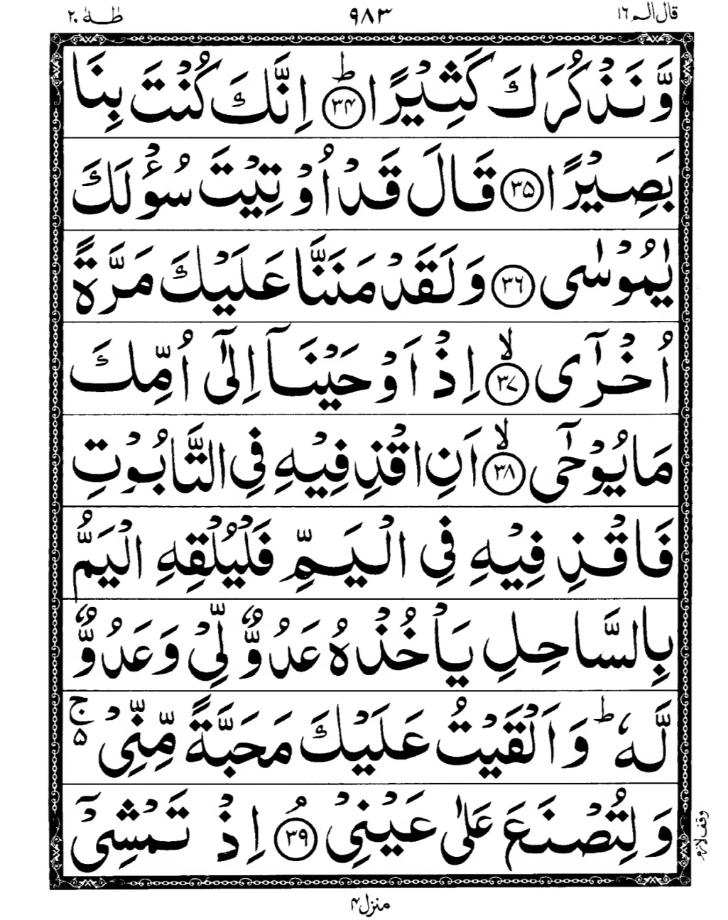 قال الم ١٦ ٩٨٣ طٰهٰ ٢٠
وَّنَذْكُرَكَ كَثِيْرًا ؕ ﴿۳۴﴾ اِنَّكَ كُنْتَ بِنَا
بَصِيْرًا ﴿۳۵﴾ قَالَ قَدْ اُوْتِيْتَ سُؤْلَكَ
يٰمُوْسٰى ﴿۳۶﴾ وَلَقَدْ مَنَنَّا عَلَيْكَ مَرَّةً
اُخْرٰٓى ۙ ﴿۳۷﴾ اِذْ اَوْحَيْنَاۤ اِلٰٓى اُمِّكَ
مَا يُوْحٰٓى ۙ ﴿۳۸﴾ اَنِ اقْذِفِيْهِ فِى التَّابُوْتِ
فَاقْذِفِيْهِ فِى الْيَمِّ فَلْيُلْقِهِ الْيَمُّ
بِالسَّاحِلِ يَاْخُذْهُ عَدُوٌّ لِّىْ وَعَدُوٌّ
لَّهٗ ؕ وَاَلْقَيْتُ عَلَيْكَ مَحَبَّةً مِّنِّىْ ۚ ۵
وَلِتُصْنَعَ عَلٰى عَيْنِىْ ۘ ﴿۳۹﴾ اِذْ تَمْشِىْٓ
وقف لازم
منزل ۴